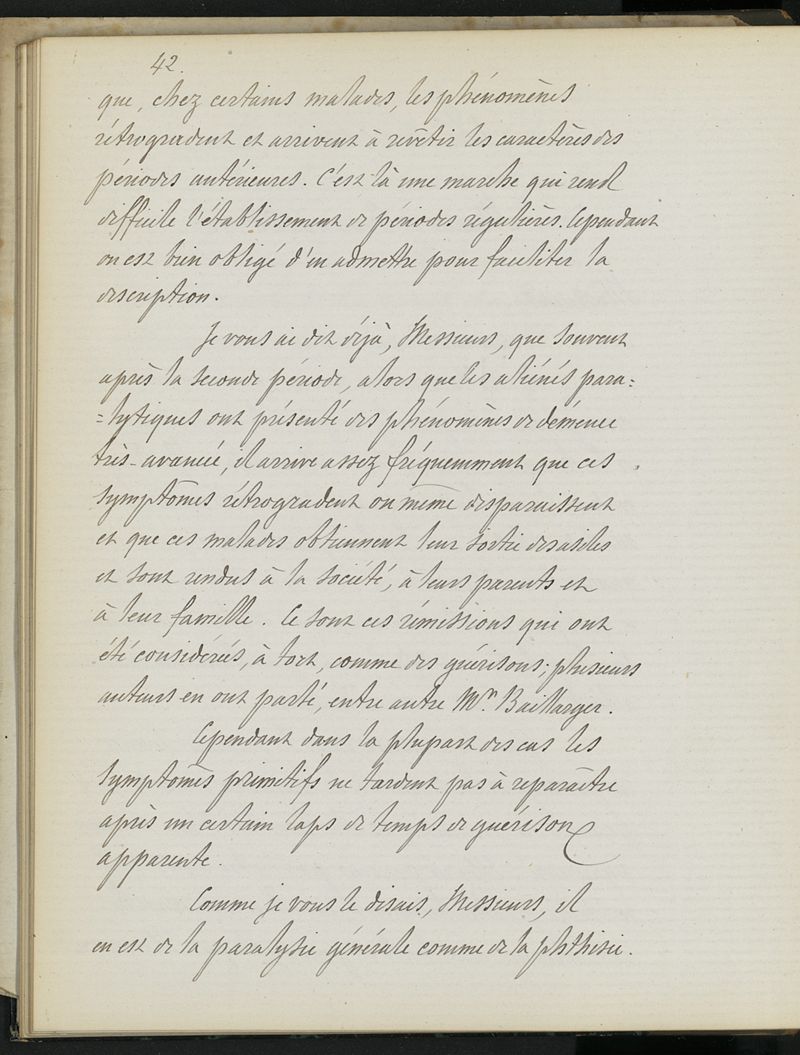 42.
que, chez certains malades, les phénomènes
rétrogradent et arrivent à revêtir les caractères des
périodes antérieures. C'est là une marche qui rend
difficile l'établissement de périodes régulières. Cependant
on est bien obligé d'en admettre pour faciliter la
description.
Je vous ai dit déjà, Messieurs, que souvent
après la seconde période, alors que les aliénés para=
=lytiques ont présenté des phénomènes de démence
très-avancée, il arrive assez fréquemment que ces
symptômes rétrogradent ou même disparaissent
et que ces malades obtiennent leur sortie des asiles
et sont rendus à la société, à leurs parents et
à leur famille. Ce sont ces rémissions qui ont
été considérées, à tort, comme des guérisons; plusieurs
auteurs en ont parlé, entre autre Mr. Baillarger.
Cependant dans la plupart des cas les
symptômes primitifs ne tardent pas à reparaître
après un certain laps de temps de guérison
apparente.
Comme je vous le disais, Messieurs, il
en est de la paralysie générale comme de la phthisie.